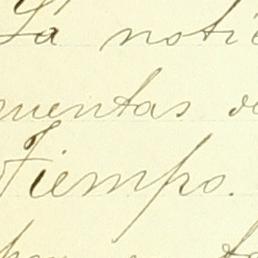 La noti
cuentas de
Tiempo.